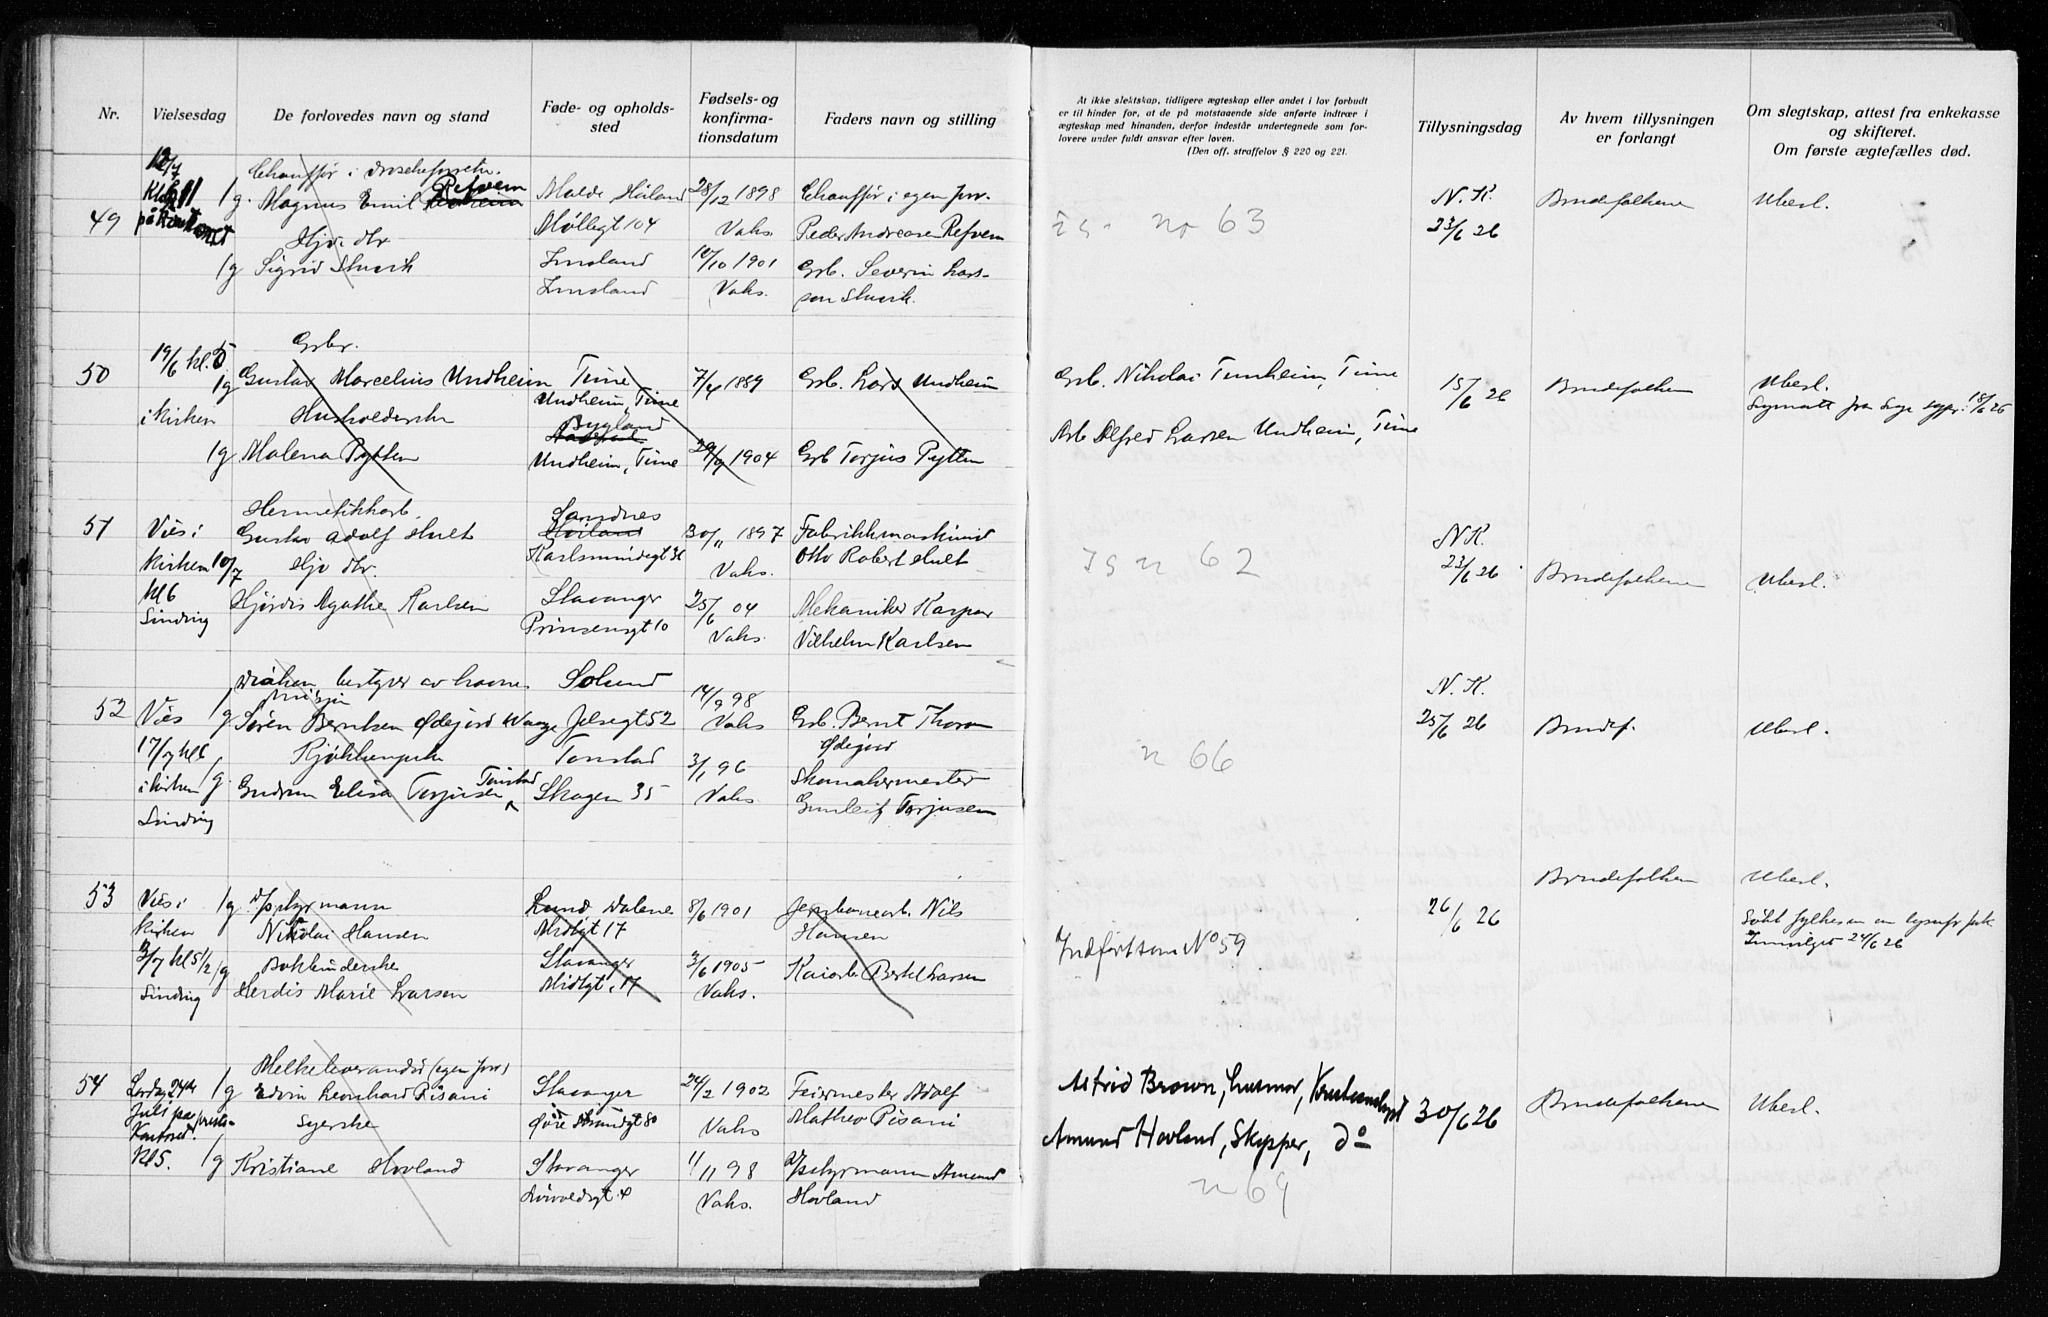 Nr.
Vielsesdag
De forlovedes navn og stand
Føde- og opholds-
sted
Fødsels- og
konfirma-
tionsdatum
Faders navn og stilling
At ikke slektskap, tidligere ægteskap eller andet i lov forbudt
er til hinder for, at de på motstaaende side anførte indtrær i
ægteskap med hinanden, derfor indestår undertegnede som for-
lovere under fuldt ansvar efter loven.
(Den off. straffelov § 220 og 221.
Tillysningsdag
Av hvem tillysningen
er forlangt
Om slegtskap, attest fra enkekasse
og skifteret.
Om første ægtefælles død.
49
12/7
Kl. 11
på kontoret
Chauffør i
1/g. Magnus Emil Refvem
Hjv. dtr.
1/g Sigrid Stuvik
Molde
Møllegt 104
Imsland
Imsland
28/12 1898
Vaks.
10/10 1901
Vaks.
Chauffør i egen forr.
Peder Andreasen Refvem
Grb. Severin Lars-
sen Stuvik.
no 63
N. K.
23/6 26
Brudefolkene
Ubesl.
50
19/6 kl. 5
i kirken
Grbr.
1/g Gustav Marcelius Undheim
Husholderske
1/g Malena Pytten
Time
Undheim, Time
Bygland
Undheim, Time
7/4 1889
29/9 1904
Grb. Lars Undheim
Grb Torjus Pytten
Grb. Nikolai Tunheim, Time
Arb Alfred Larsen Undheim, Time
15/6 26
Brudefolkene
Ubesl.
18/6 26
51
Vies i
kirken 10/7
kl 6
Sinding
Hermetikkarb.
Gustav Adolf Hult
Hjv dtr.
Hjørdis Agathe Karlsen
Sandnes
Karlsminnegt 36
Stavanger
Prinsensgt 10
30/11 1897
Vaks.
25/6 04
Vaks.
Fabrikkmaskinist
Otto Robert Hult
Mekaniker Kaspar
Vilhelm Karlsen
n 62
N.K.
23/6 26.
Brudefolkene
Ubesl.
52
Vies
17/7 kl 6
i kirken
Sinding
Diakon, bestyrer av havne-
misjon
1/g Søren Berntsen Ødejord Waage
Kjøkkenpike
1/g. Gudrun Elisa Torjusen Tonstad
Solund
Jelsegt 52
Tonstad
Skagen 35
14/9 98
Vaks
3/1 96
Vaks.
Grb. Bernt Thoran
Ødejord
Skomakermester
Gunleif Torjusen
n 66
N. K.
25/6 26
Brudef.
Ubesl.
53
Vies i
kirken
3/7 kl 5 1/2
Sinding
1/g. D/s styrmann
Nikolai Hansen
1/g Bokbinderske
Herdis Marie Larsen
Lund Dalene
Midtgt 17
Stavanger
Midtgt. 17
8/6 1901
3/6 1905
Vaks.
Jernbanearb. Nils
Hansen
Kaiarb. Bertel Larsen
Indført som No 59
26/6 26
Brudefolkene
Ubesl.
Innvilget 24/6 26
54
Lørdag 24de
Juli på prestekontoret.
Kl 5.
Melkeleverandør (egen forr)
1/g Edvin Leonhard Pisani
Syerske
1/g Kristiane Hovland
Stavanger
Øvre Strandgt 80
Stavanger
24/2 1902
Vaks
1/11 98
Vaks.
Feiermester Adolf
Matheo Pisani
D/s styrmann Amund
Hovland
Astrid Brown, husmor,
Amund Hovland, Skipper, do
n 69
30/6 26
Brudefolkene
Ubesl.